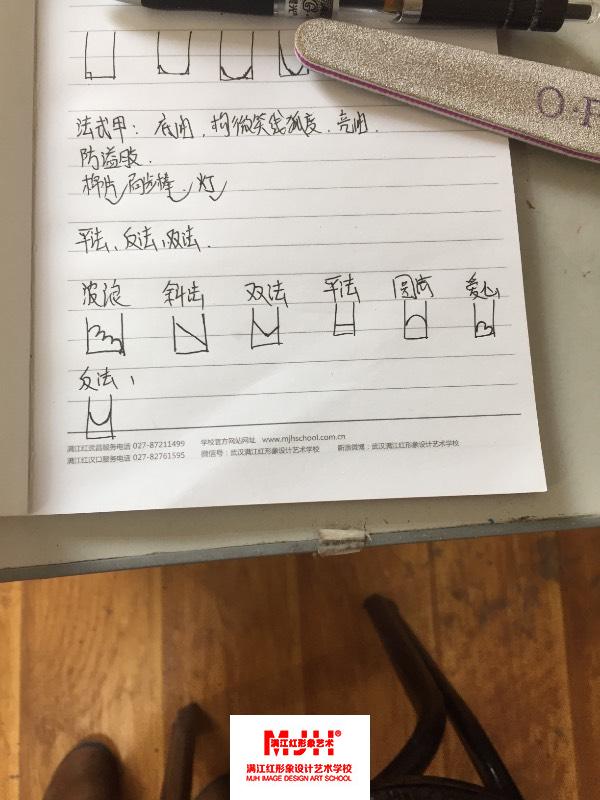 O·F
法式甲：底油，构微笑线弧度，亮油．
防溢胶．
棉片 桔木棒、灯
平法、反法、双法．
波浪 斜法 双法 平法 圆法 爱心
反法、
满江红武昌服务电话 027-87211499 学校官方网站网址 www.mjhschool.com.cn
满江红汉口服务电话 027-82761595 微信号：武汉满江红形象设计艺术学校 新浪微博：武汉满江红形象设计艺术学校
MJH®
满江红形象艺术
满江红形象设计艺术学校
MJH IMAGE DESIGN ART SCHOOL